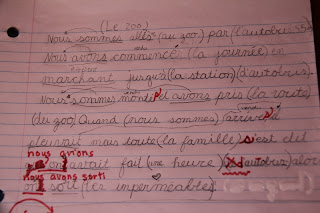 (Le zoo)
Nous sommes allés (au zoo) par (l'autobus
Nous avons commencé (la journée) en
marchant jusqu'à (la station) (d'autobus).
Nous sommes monté avons pris (la route)
(du zoo) Quand (nous sommes) (arrivé
pleuvait mais toute (la famille) s'est dit
nous avions
fait (une heure) autobus) alor
nous avons sorti
sorti (l'er imperméable)